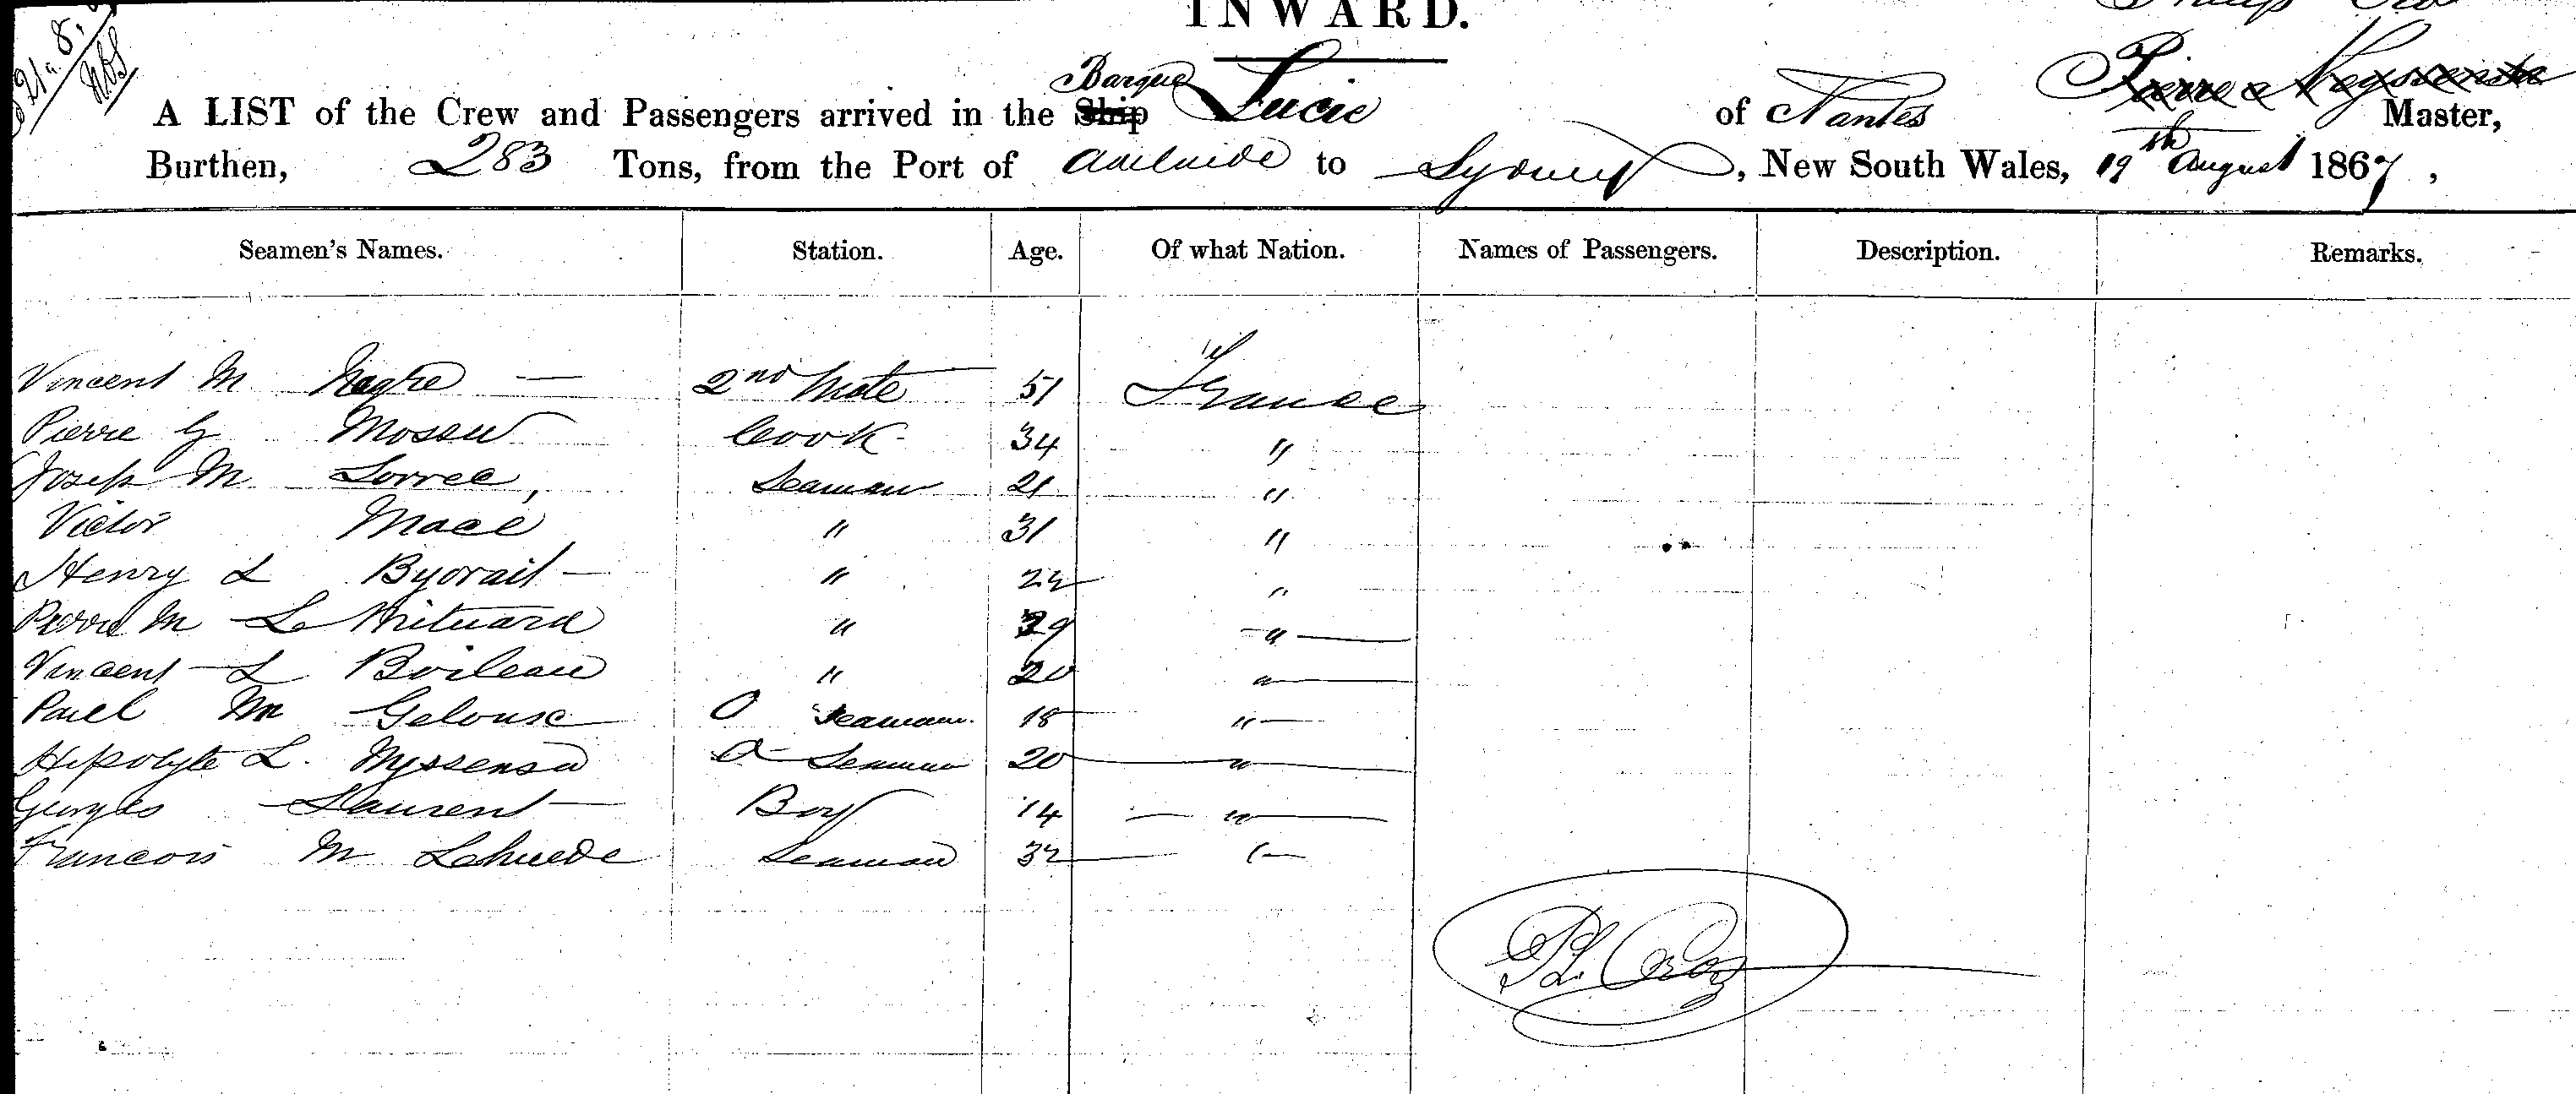 INWARD.
A LIST of the Crew and Passengers arrived in the Ship Barque Lucie of Nantes Master,
Burthen, 283 Tons, from the Port of Adelaide to Sydney, New South Wales, 19th August 1867,
Seamen's Names. Station. Age. Of what Nation. Names of Passengers. Description. Remarks.
Vincent M Negre — 2nd Mate 51 France
Pierre G Mosau Cook 34 "
Josep M Lorrec, Seaman 21 "
Victor Mace " 31 "
Henry L " 22 "
Pierre M Le " 39 "
Vincent L Boileau " 20 "
Paul M Gelouse O Seaman 18 "
Hipolyte L. O Seaman 20 "
Georges Laurent Boy 14 "
Francois M Lehuede Seaman 32 "